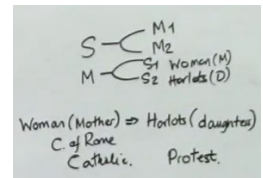 M1
S
M2
S1 Women (M)
M
S2 Harlots (D)
Woman (Mother) ⇒ Harlots (daughters)
C. of Rome
Catholic. Protest.